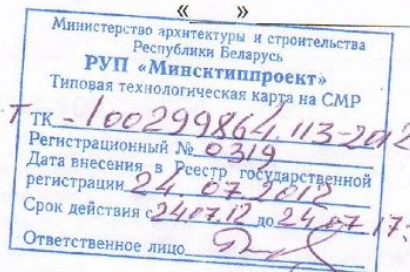 «    »
Министерство архитектуры и строительства
Республики Беларусь
РУП «Минсктиппроект»
Типовая технологическая карта на СМР
Т ТК - 100299864.113-2012
Регистрационный № 0319
Дата внесения в Реестр государственной
регистрации 24 07 2012
Срок действия с 24.07.12 до 24.07.17г.
Ответственное лицо